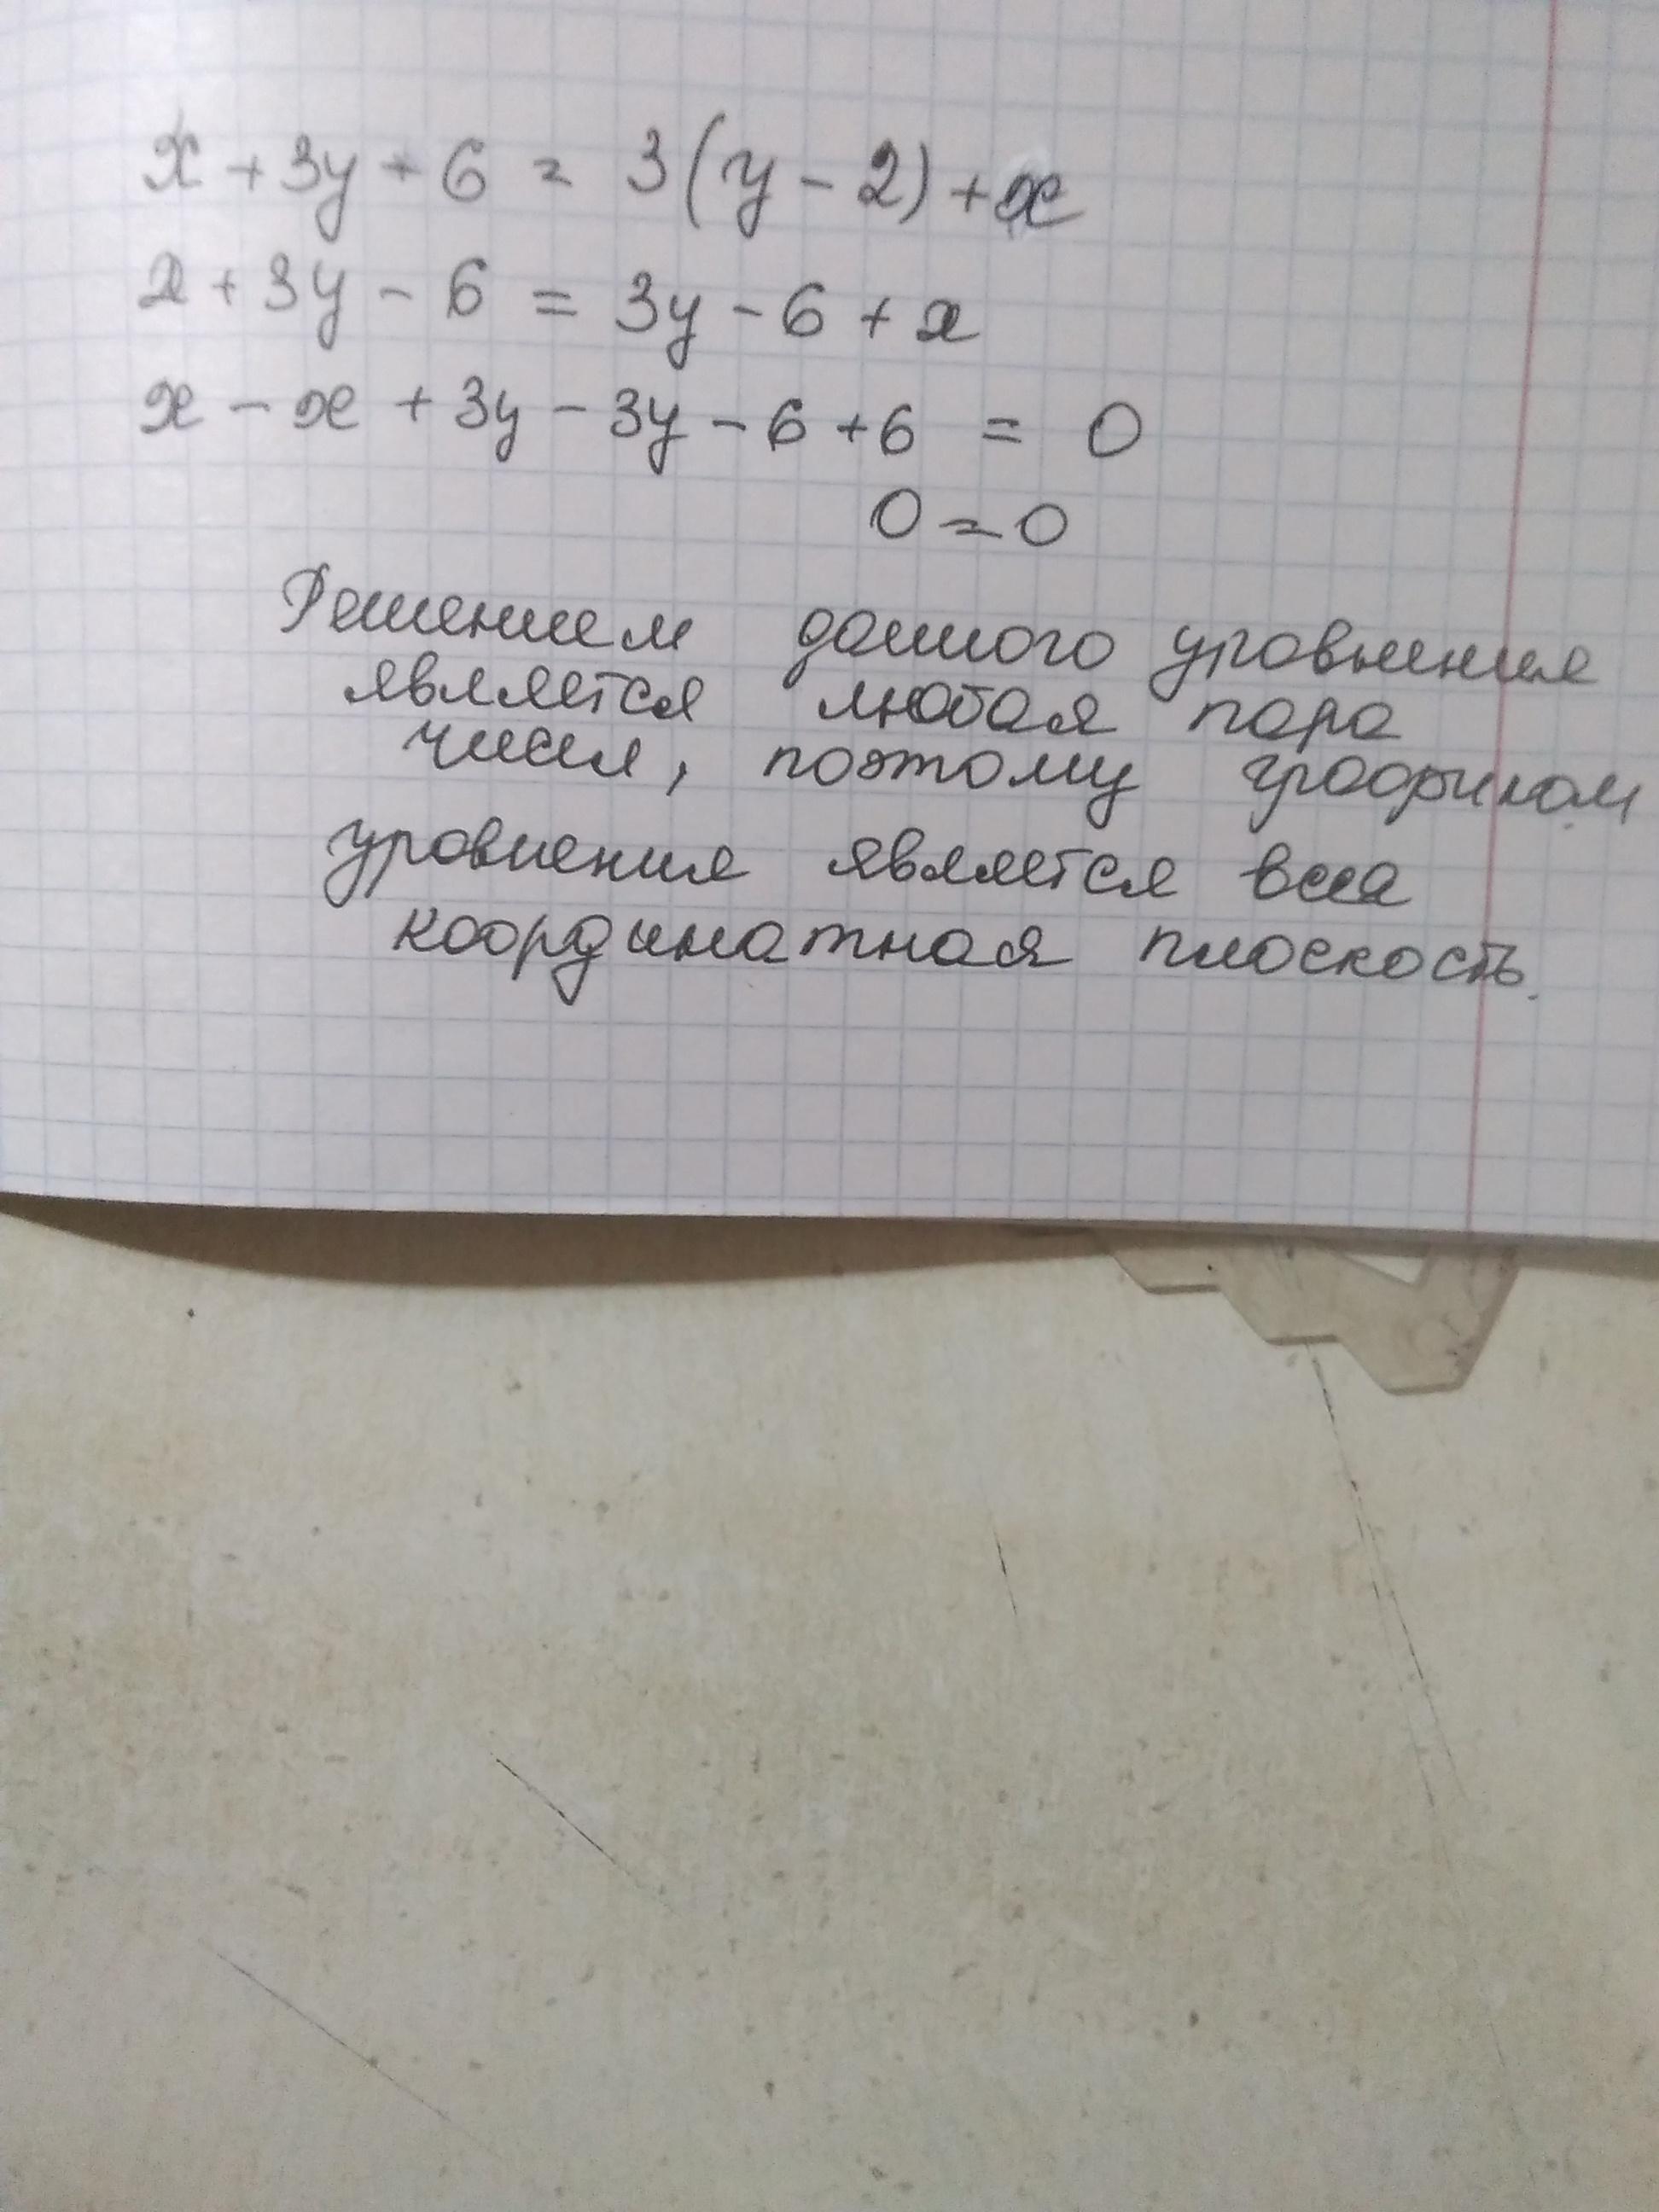 x + 3y + 6 = 3(y - 2) + x
x + 3y - 6 = 3y - 6 + x
x - x + 3y - 3y - 6 + 6 = 0
0 = 0
Решением данного уровнения
является любая пара
чисел, поэтому графиком
уровнения является вся
координатная плоскость.